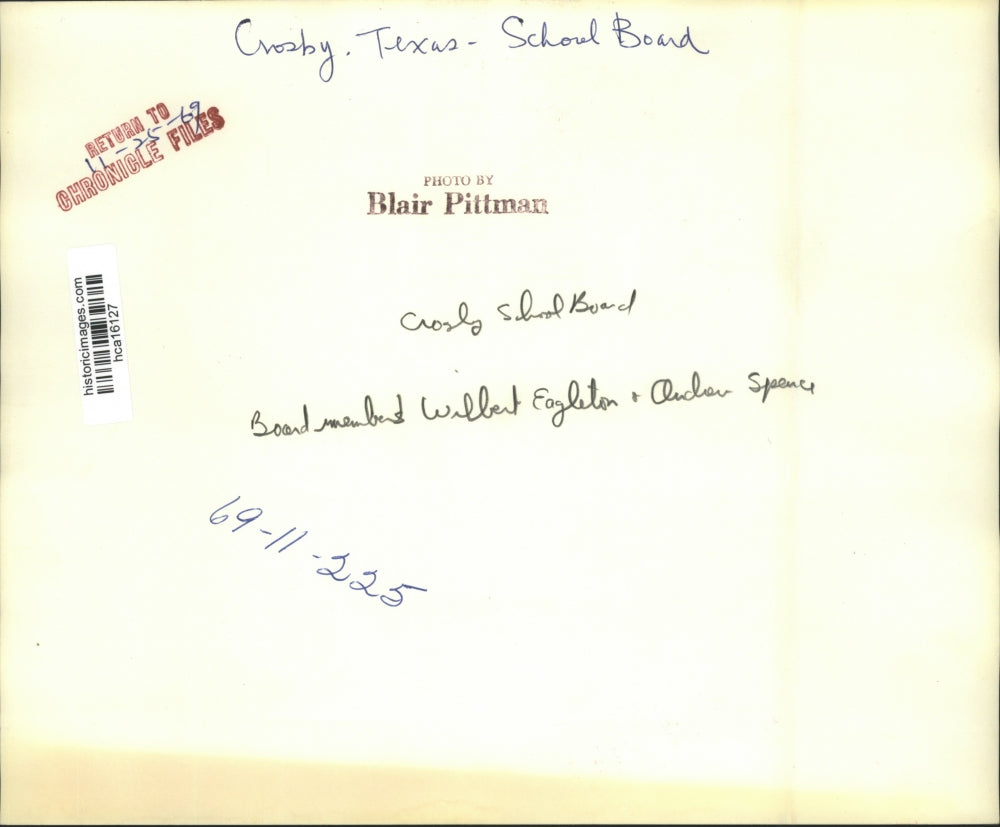 Crosby, Texas - School Board
RETURN TO
11-25-69
CHRONICLE FILES
PHOTO BY
Blair Pittman
historicimages.com
hca16127
Crosby School Board
Board members Wilbert Eagleton + Andrew Spence
69-11-225